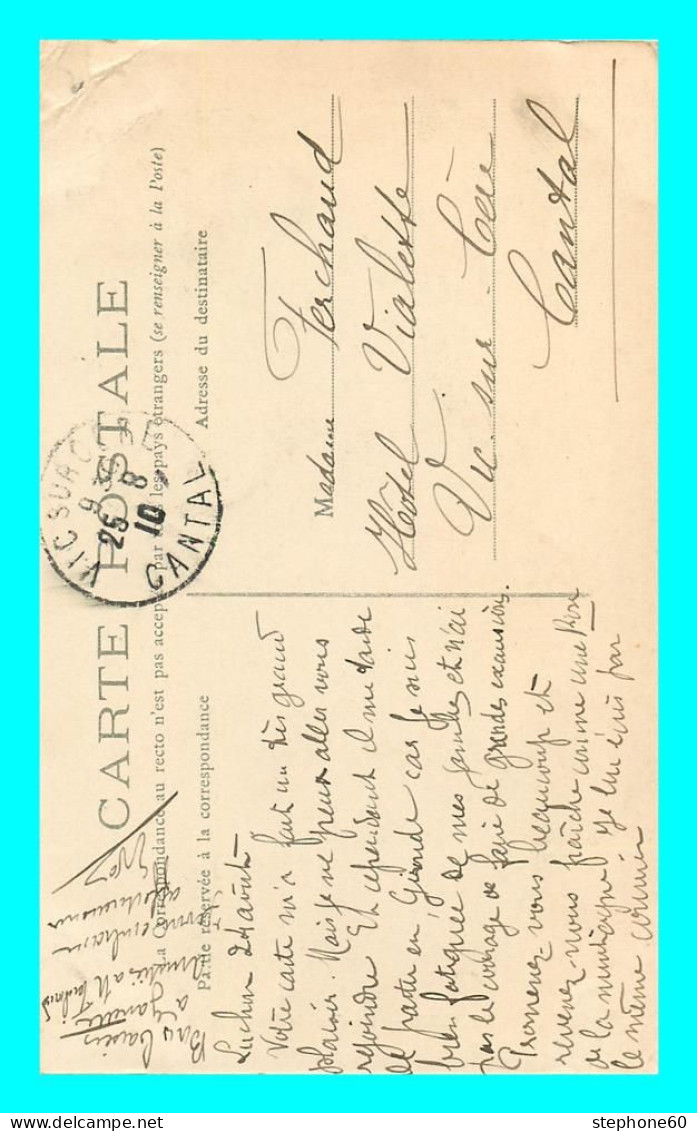 CARTE POSTALE
La Correspondance au recto n'est pas acceptée par tous les pays étrangers (se renseigner à la Poste)
Partie réservée à la correspondance
Adresse du destinataire
VIC SUR CERE
9
25 8
10
CANTAL
Madame Ferchaud
Hotel Vialette
Vic sur Cère
Cantal
Luchon 24 août
Votre carte m'a fait un très grand
plaisir. Mais je ne peux aller vous
rejoindre Et cependant il me tarde
de partir en Gironde car je suis
bien fatiguée de mes jambes et n'ai
pas le courage de faire de grandes excursions.
Promenez-vous beaucoup et
revenez-nous fraîche comme une Rose
de la montagne. Je lui écris par
le même courrier
Bons baisers